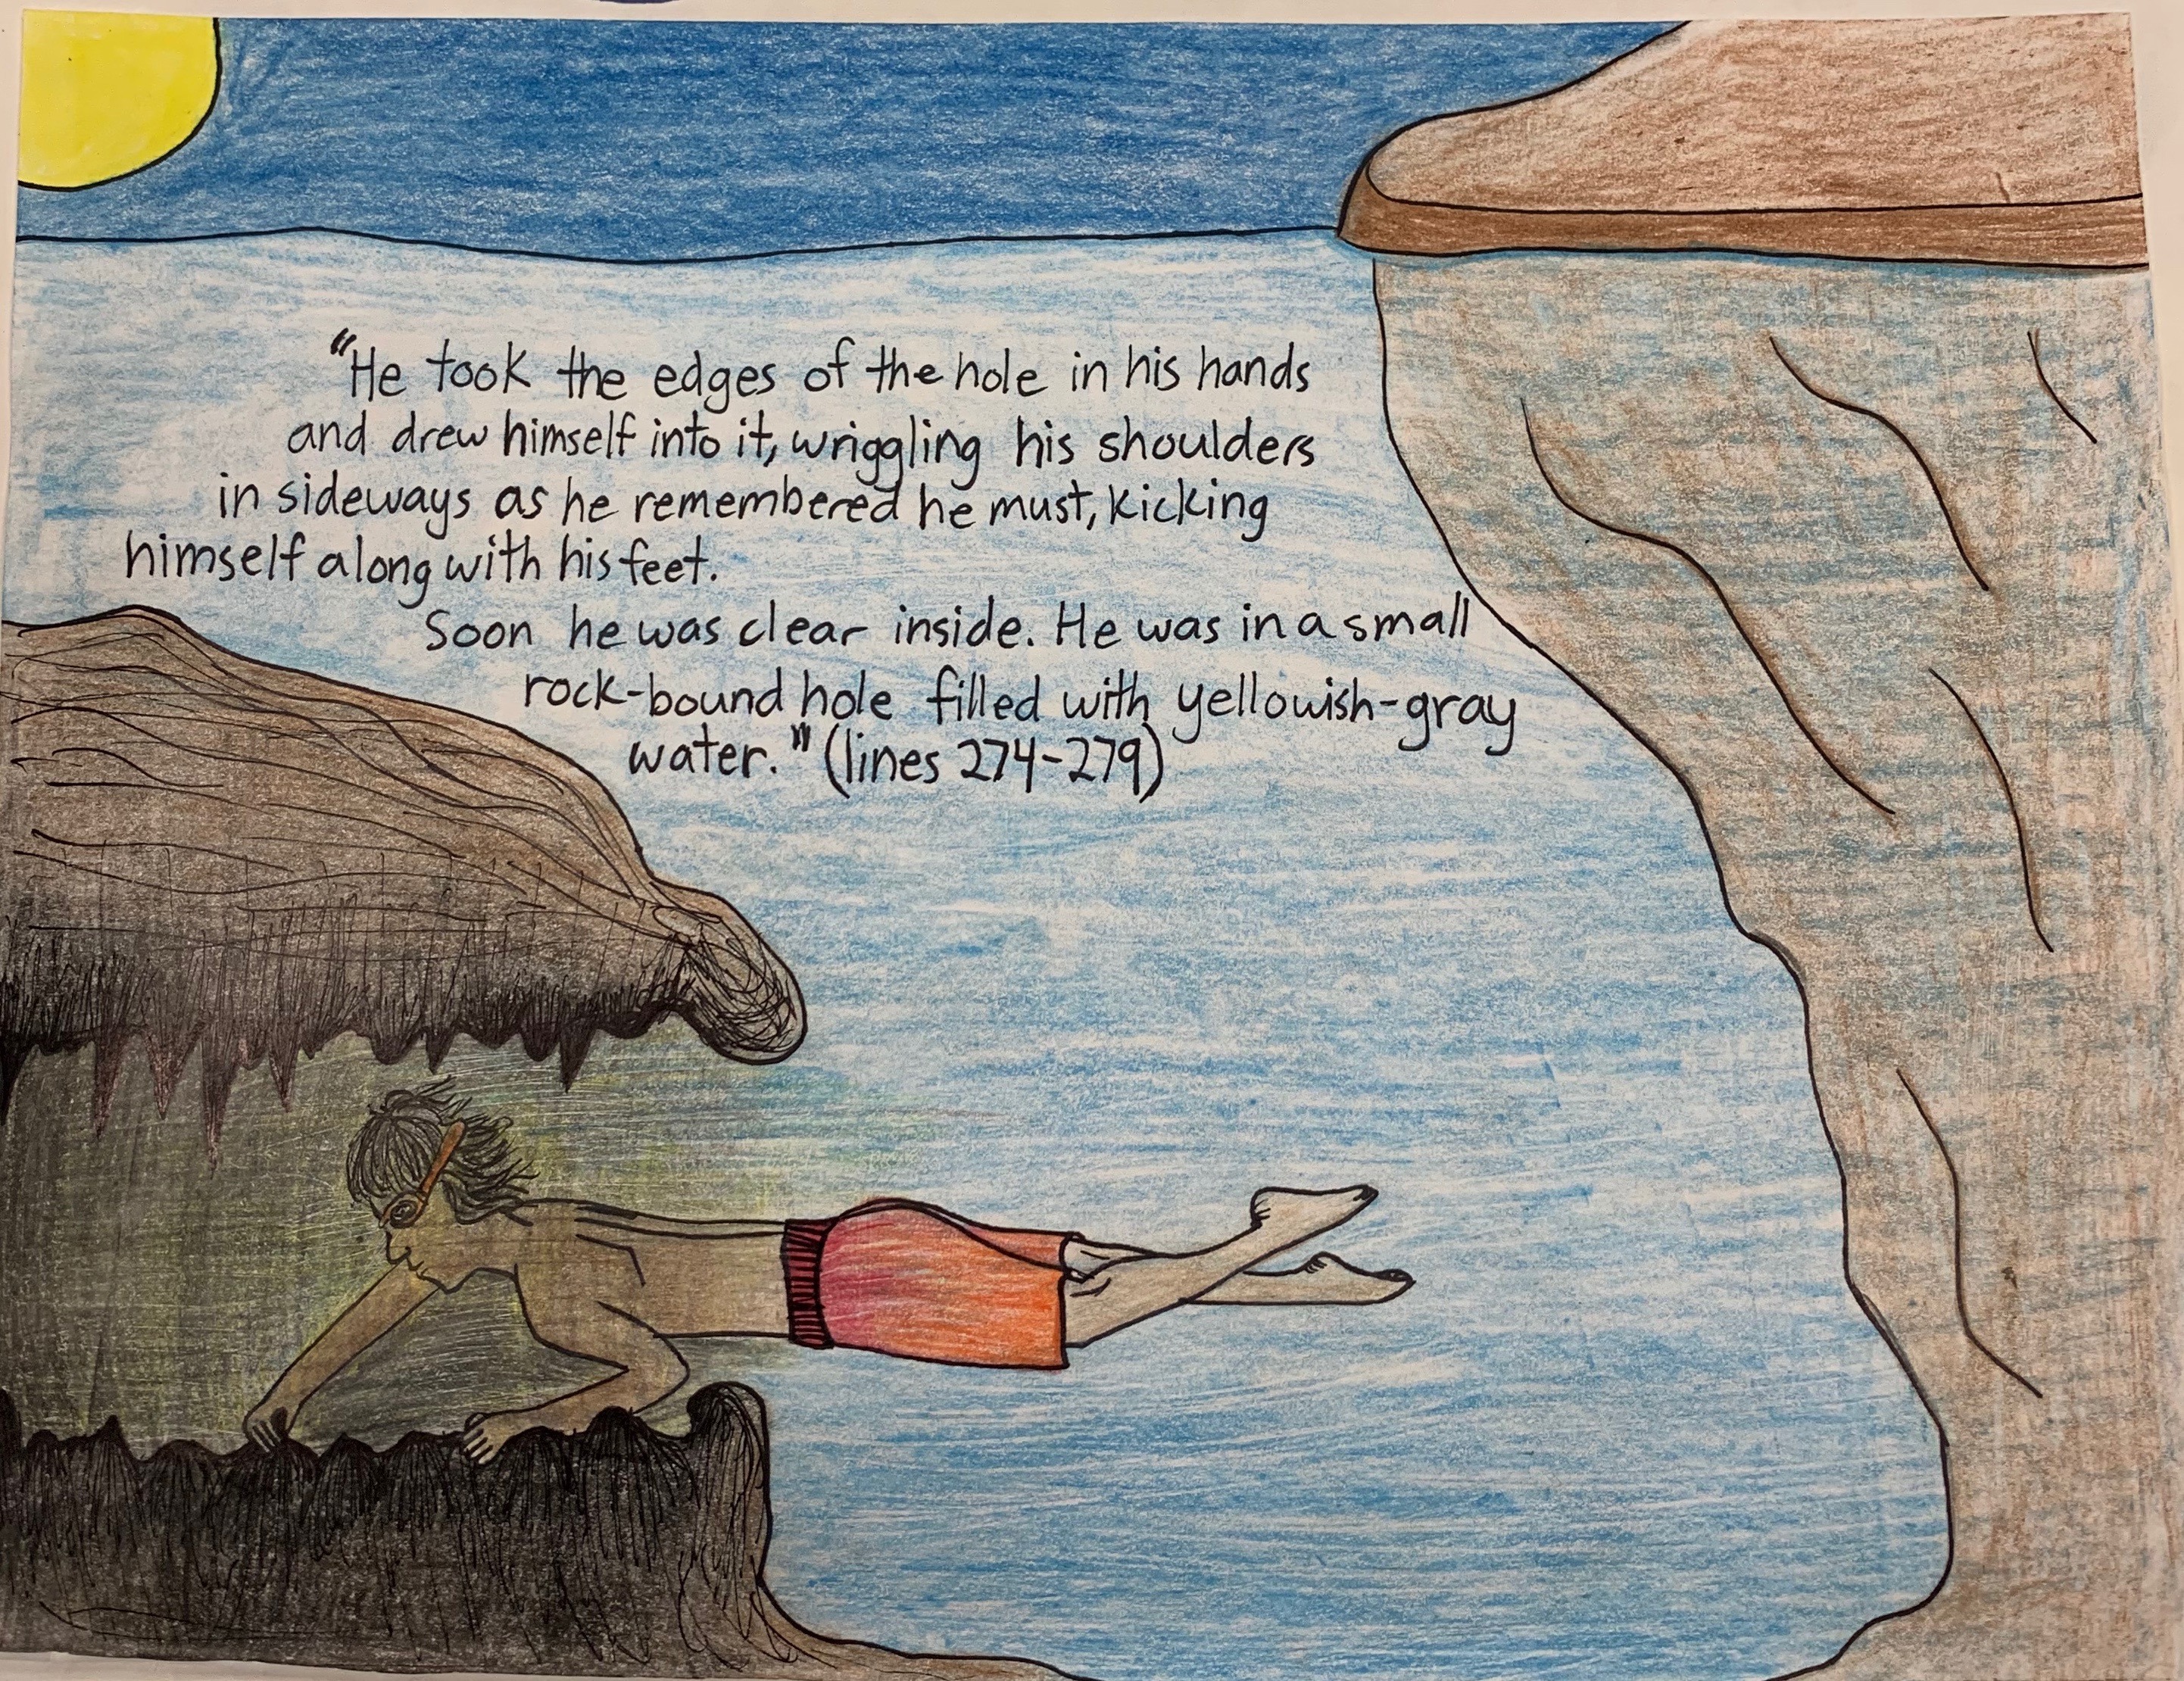 "He took the edges of the hole in his hands
and drew himself into it, wriggling his shoulders
in sideways as he remembered he must, kicking
himself along with his feet.
Soon he was clear inside. He was in a small
rock-bound hole filled with yellowish-gray
water." (lines 274-279)